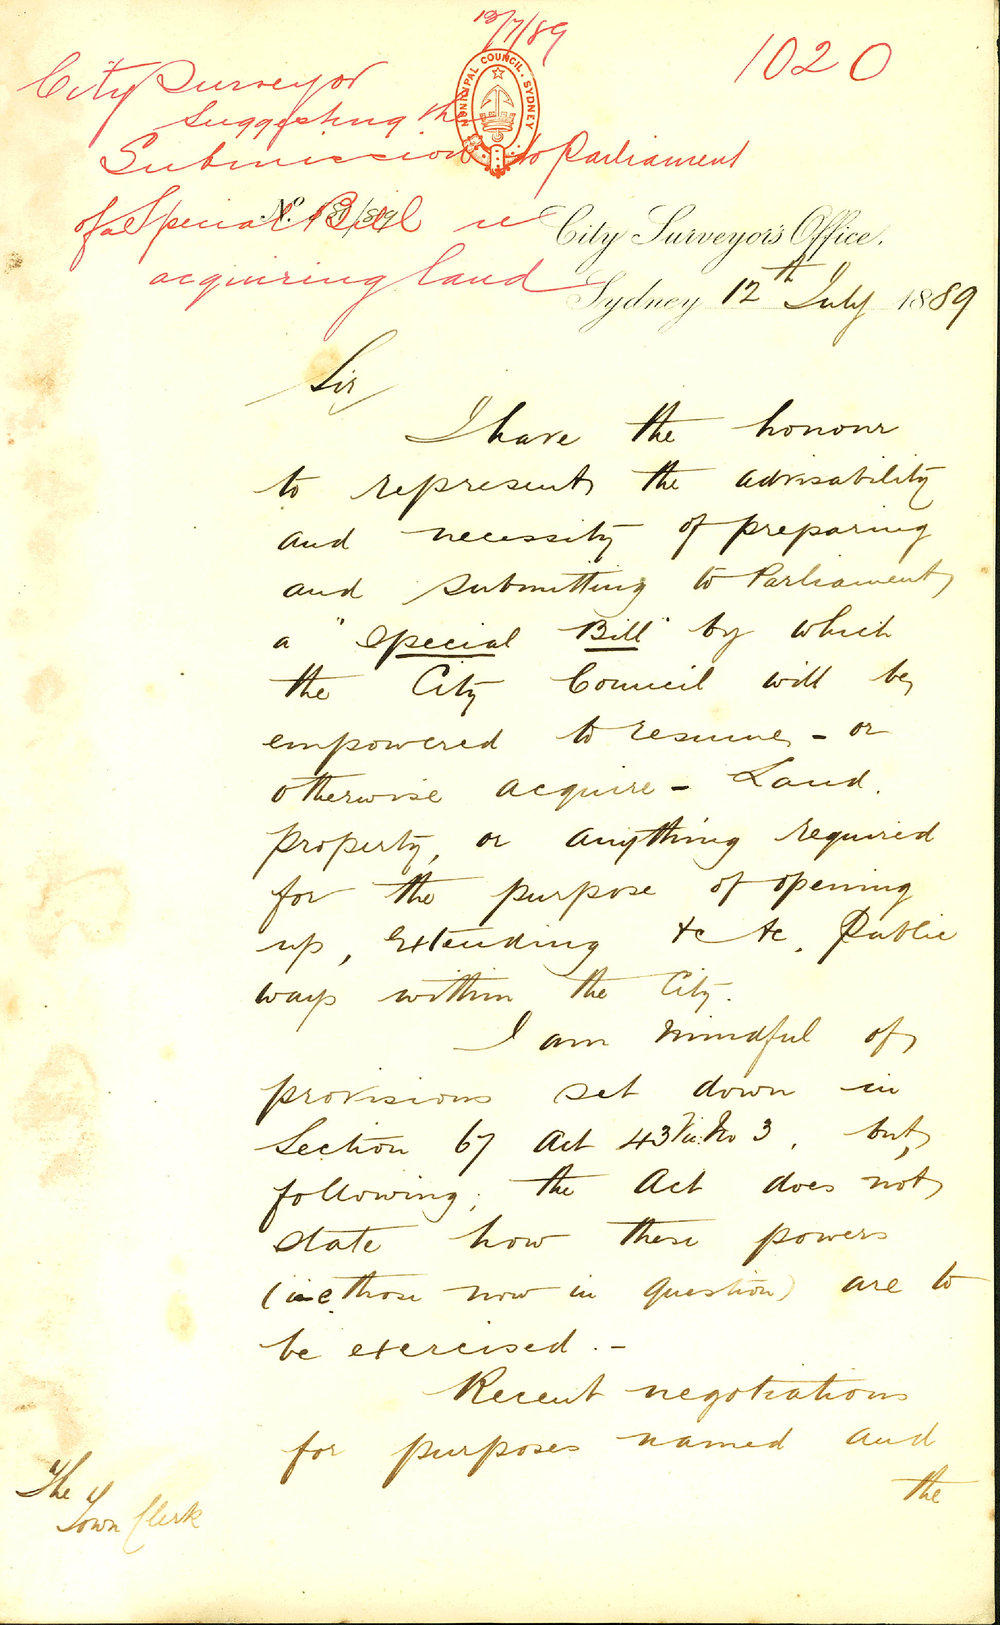 12/7/89
1020
MUNICIPAL COUNCIL. SYDNEY
City Surveyor
Suggesting the
Submission to Parliament
of a Special Bill re
acquiring land
No.
City Surveyor's Office.
Sydney 12th July 1889
Sir
I have the honour
to represent the advisability
and necessity of preparing
and submitting to Parliament
a "Special Bill" by which
the City Council will be
empowered to resume - or
otherwise acquire - Land.
property, or anything required
for the purpose of opening
up, extending &c &c. Public
ways within the City.
I am mindful of
provisions set down in
Section 67 Act 43 Vic. No 3, but,
following, the Act does not
state how these powers
(i.e those now in question) are to
be exercised. -
Recent negotiations
for purposes named and
the
The
Town Clerk